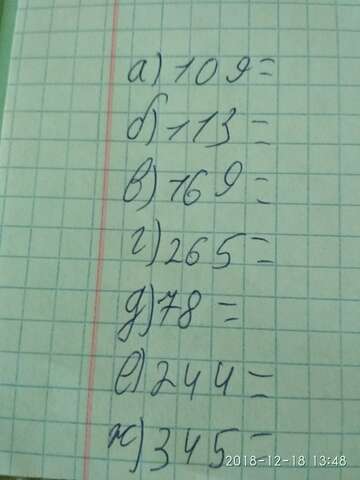 а) 109=
б) 113=
в) 169=
г) 265=
д) 78=
е) 244=
ж) 345=
2018-12-18 13:48